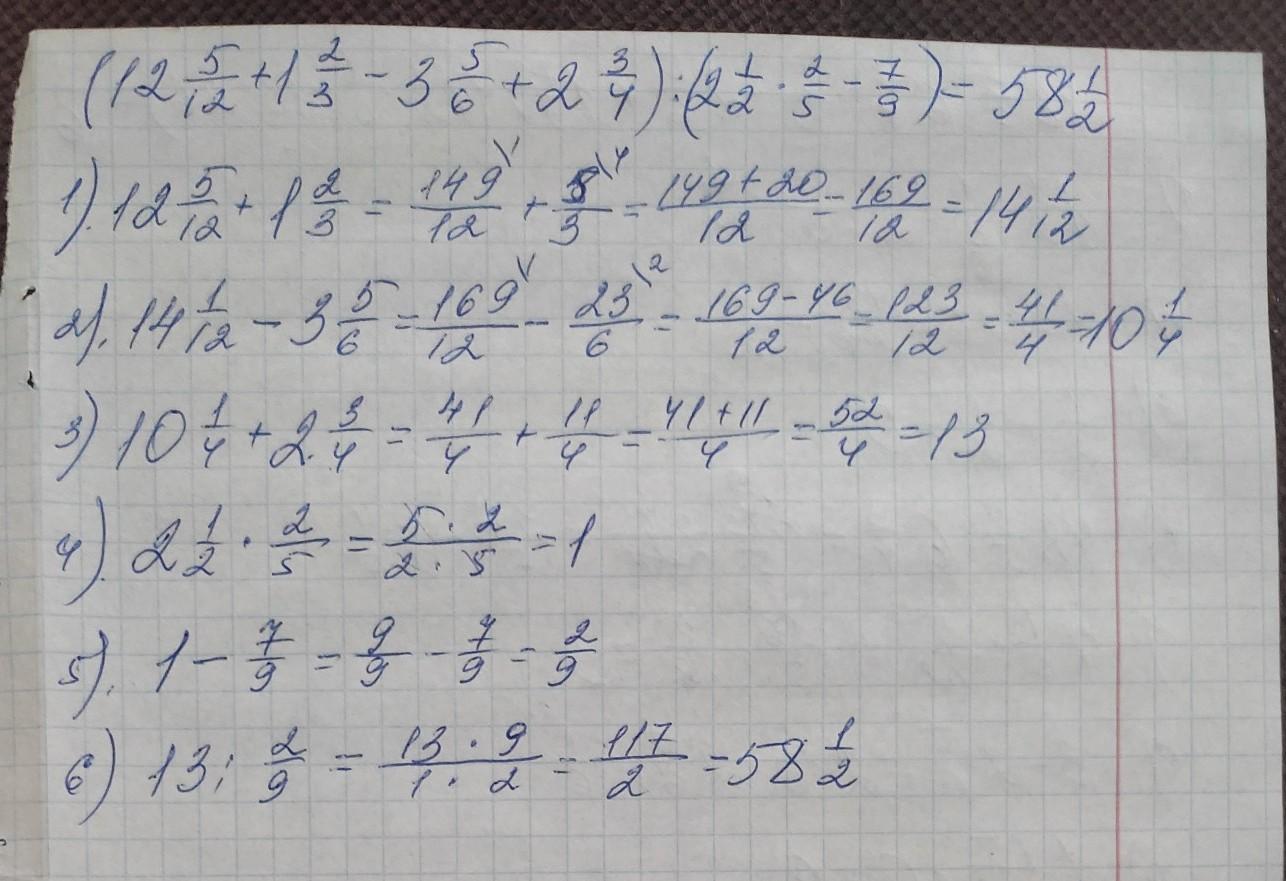 (12 5/12 + 1 2/3 - 3 5/6 + 2 3/4) : (2 1/2 · 2/5 - 7/9) = 58 1/2
1). 12 5/12 + 1 2/3 = 149\1/12 + 5\4/3 = 149+20/12 = 169/12 = 14 1/12
2). 14 1/12 - 3 5/6 = 169\1/12 - 23\2/6 = 169-46/12 = 123/12 = 41/4 = 10 1/4
3) 10 1/4 + 2 3/4 = 41/4 + 11/4 = 41+11/4 = 52/4 = 13
4). 2 1/2 · 2/5 = 5·2/2·5 = 1
5). 1 - 7/9 = 9/9 - 7/9 = 2/9
6) 13 : 2/9 = 13·9/1·2 = 117/2 = 58 1/2